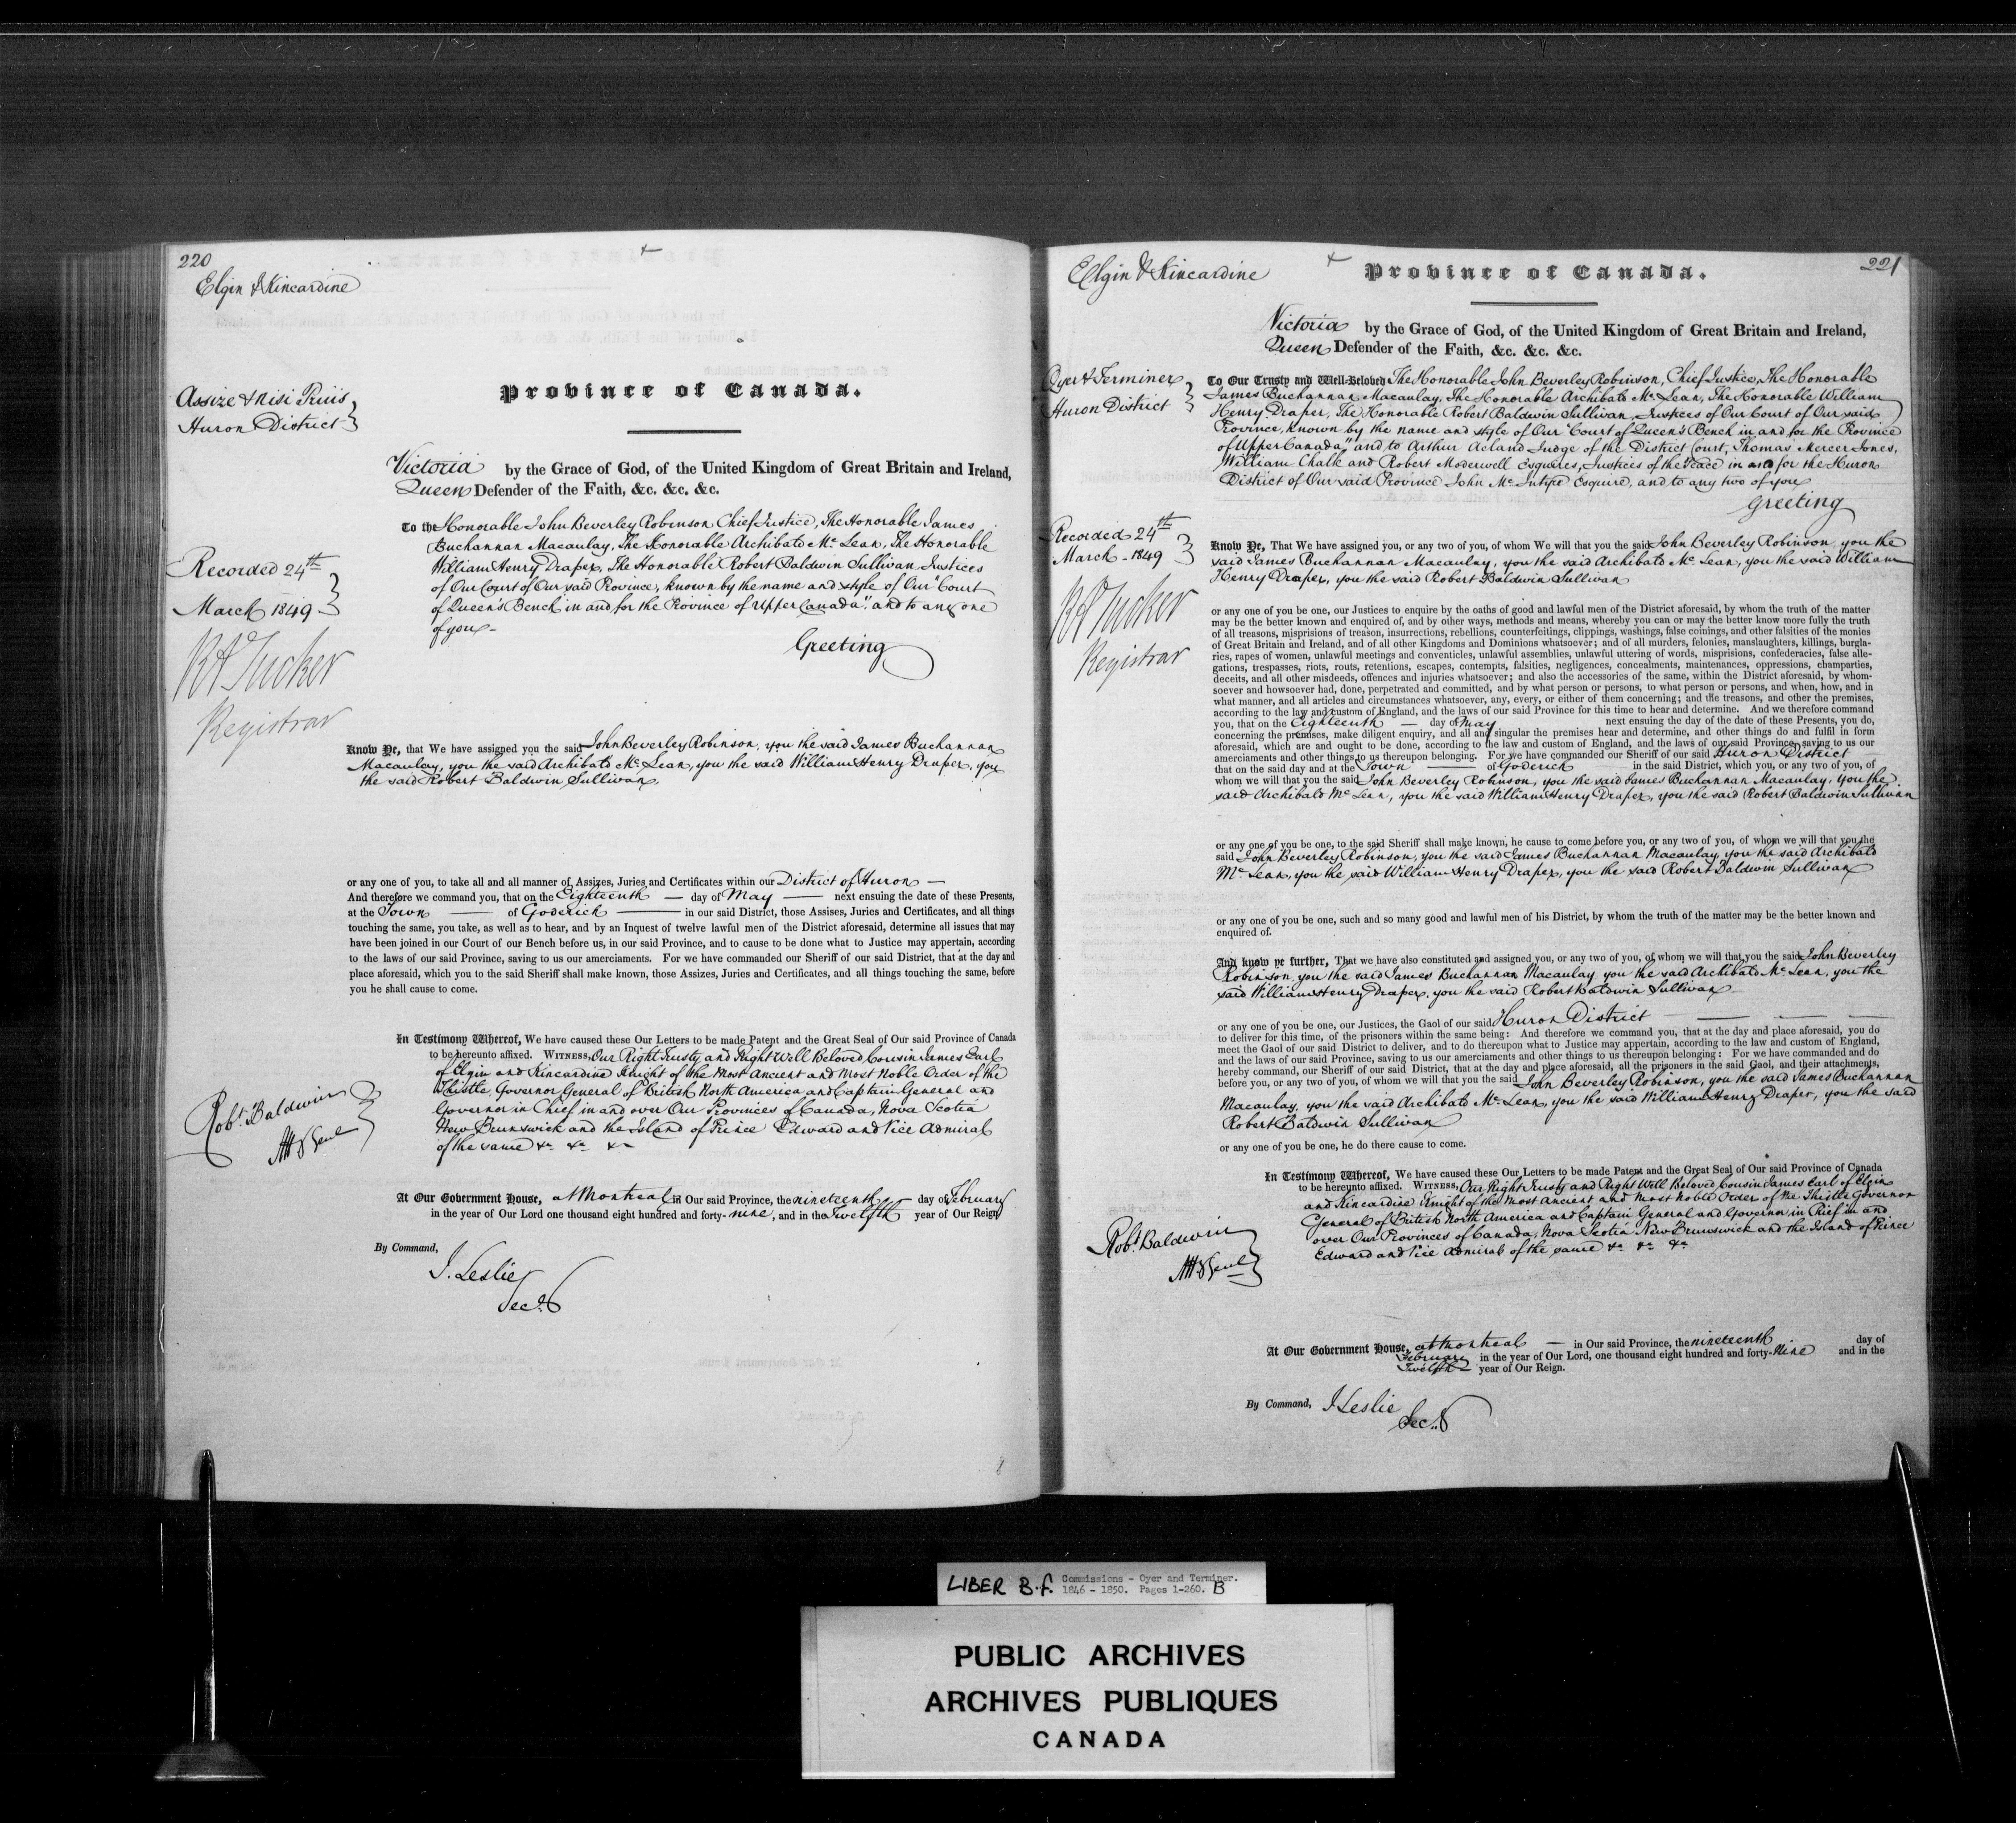 220
Elgin & Kincardine
Assize & Nisi Priis
Huron District
Recorded 24th
March 1849
RA Tucker
Registrar
Province of Canada.
Victoria by the Grace of God, of the United Kingdom of Great Britain and Ireland,
Queen Defender of the Faith, &c. &c. &c.
To the Honorable John Beverley Robinson Chief Justice, The Honorable James
Buchannan Macaulay, The Honorable Archibald Mc Lean, The Honorable
William Henry Draper, The Honorable Robert Baldwin Sullivan Justices
of Our Court of Our said Province, known by the name and style of Our "Court
of Queen's Bench in and for the Province of Upper Canada", and to any one
of you-
Greeting
Know Ye, that We have assigned you the said John Beverley Robinson, you the said James Buchannan
Macaulay, you the said Archibald Mc Lean, you the said William Henry Draper, you
the said Robert Baldwin Sullivan
or any one of you, to take all and all manner of Assizes, Juries and Certificates within our District of Huron —
And therefore we command you, that on the Eighteenth — day of May — next ensuing the date of these Presents,
at the Town — of Goderich — in our said District, those Assises, Juries and Certificates, and all things
touching the same, you take, as well as to hear, and by an Inquest of twelve lawful men of the District aforesaid, determine all issues that may
have been joined in our Court of our Bench before us, in our said Province, and to cause to be done what to Justice may appertain, according
to the laws of our said Province, saving to us our amerciaments. For we have commanded our Sheriff of our said District, that at the day and
place aforesaid, which you to the said Sheriff shall make known, those Assizes, Juries and Certificates, and all things touching the same, before
you he shall cause to come.
In Testimony Whereof, We have caused these Our Letters to be made Patent and the Great Seal of Our said Province of Canada
to be hereunto affixed. WITNESS, Our Right Trusty and Right Well Beloved Cousin James Earl
of Elgin and Kincardine Knight of the Most Ancient and Most Noble Order of the
Thistle, Governor General of British North America and Captain General and
Governor in Chief in and over Our Provinces of Canada, Nova Scotia
New Brunswick and the Island of Prince Edward and Vice Admiral
of the same &c &c &c
Robt. Baldwin
Atty Genl
At Our Government House, at Montreal in Our said Province, the nineteenth day of February
in the year of Our Lord one thousand eight hundred and forty-nine, and in the Twelfth year of Our Reign
By Command,
J. Leslie
Secy.
Elgin & Kincardine
Province of Canada.
221
Victoria by the Grace of God, of the United Kingdom of Great Britain and Ireland,
Queen Defender of the Faith, &c. &c. &c.
Oyer & Terminer
Huron District
Recorded 24th
March - 1849
RA Tucker
Registrar
To Our Trusty and Well-Beloved The Honorable John Beverley Robinson, Chief Justice, The Honorable
James Buchannan Macaulay, The Honorable Archibald Mc Lean, The Honorable William
Henry Draper, The Honorable Robert Baldwin Sullivan, Justices of Our Court of Our said
Province, known by the name and style of Our "Court of Queen's Bench in and for the Province
of Upper Canada" and to Arthur Acland Judge of the District Court, Thomas Mercer Jones,
William Chalk and Robert Moderwell Esquires, Justices of the Peace in and for the Huron
District of Our said Province John Mc Intyre Esquire, and to any two of you
Greeting
Know Ye, That We have assigned you, or any two of you, of whom We will that you the said John Beverley Robinson, you the
said James Buchannan Macaulay, you the said Archibald Mc Lean, you the said William
Henry Draper, you the said Robert Baldwin Sullivan
or any one of you be one, our Justices to enquire by the oaths of good and lawful men of the District aforesaid, by whom the truth of the matter
may be the better known and enquired of, and by other ways, methods and means, whereby you can or may the better know more fully the truth
of all treasons, misprisions of treason, insurrections, rebellions, counterfeitings, clippings, washings, false coinings, and other falsities of the monies
of Great Britain and Ireland, and of all other Kingdoms and Dominions whatsoever; and of all murders, felonies, manslaughters, killings, burgla-
ries, rapes of women, unlawful meetings and conventicles, unlawful assemblies, unlawful uttering of words, misprisions, confederacies, false alle-
gations, trespasses, riots, routs, retentions, escapes, contempts, falsities, negligences, concealments, maintenances, oppressions, champarties,
deceits, and all other misdeeds, offences and injuries whatsoever; and also the accessories of the same, within the District aforesaid, by whom-
soever and howsoever had, done, perpetrated and committed, and by what person or persons, to what person or persons, and when, how, and in
what manner, and all articles and circumstances whatsoever, any, every, or either of them concerning; and the treasons, and other the premises,
according to the law and custom of England, and the laws of our said Province for this time to hear and determine. And we therefore command
you, that on the Eighteenth — day of May next ensuing the day of the date of these Presents, you do,
concerning the premises, make diligent enquiry, and all and singular the premises hear and determine, and other things do and fulfil in form
aforesaid, which are and ought to be done, according to the law and custom of England, and the laws of our said Province, saving to us our
amerciaments and other things to us thereupon belonging. For we have commanded our Sheriff of our said Huron District
that on the said day and at the Town — of Goderich — in the said District, which you, or any two of you, of
whom we will that you the said John Beverley Robinson, you the said James Buchannan Macaulay, you the
said Archibald Mc Lean, you the said William Henry Draper, you the said Robert Baldwin Sullivan
or any one of you be one, to the said Sheriff shall make known, he cause to come before you, or any two of you, of whom we will that you the
said John Beverley Robinson, you the said James Buchannan Macaulay, you the said Archibald
Mc Lean, you the said William Henry Draper, you the said Robert Baldwin Sullivan
or any one of you be one, such and so many good and lawful men of his District, by whom the truth of the matter may be the better known and
enquired of.
And know ye further, That we have also constituted and assigned you, or any two of you, of whom we will that you the said John Beverley
Robinson, you the said James Buchannan Macaulay you the said Archibald Mc Lean, you the
said William Henry Draper, you the said Robert Baldwin Sullivan
or any one of you be one, our Justices, the Gaol of our said Huron District —
to deliver for this time, of the prisoners within the same being: And therefore we command you, that at the day and place aforesaid, you do
meet the Gaol of our said District to deliver, and to do thereupon what to Justice may appertain, according to the law and custom of England,
and the laws of our said Province, saving to us our amerciaments and other things to us thereupon belonging: For we have commanded and do
hereby command, our Sheriff of our said District, that at the day and place aforesaid, all the prisoners in the said Gaol, and their attachments,
before you, or any two of you, of whom we will that you the said John Beverley Robinson, you the said James Buchannan
Macaulay, you the said Archibald Mc Lean, you the said William Henry Draper, you the said
Robert Baldwin Sullivan
or any one of you be one, he do there cause to come.
In Testimony Whereof, We have caused these Our Letters to be made Patent and the Great Seal of Our said Province of Canada
to be hereunto affixed. WITNESS, Our Right Trusty and Right Well Beloved Cousin James Earl of Elgin
and Kincardine Knight of the Most Ancient and Most Noble Order of the Thistle Governor
General of British North America and Captain General and Governor in Chief in and
over Our Provinces of Canada, Nova Scotia New Brunswick and the Island of Prince
Edward and Vice Admiral of the same &c &c &c
Robt. Baldwin
Atty Genl
At Our Government House, at Montreal — in Our said Province, the nineteenth day of
February in the year of Our Lord, one thousand eight hundred and forty-nine and in the
Twelfth year of Our Reign.
By Command, J Leslie
Secy.
LIBER B.f. Commissions - Oyer and Terminer.
1846 - 1850. Pages 1-260. B
PUBLIC ARCHIVES
ARCHIVES PUBLIQUES
CANADA